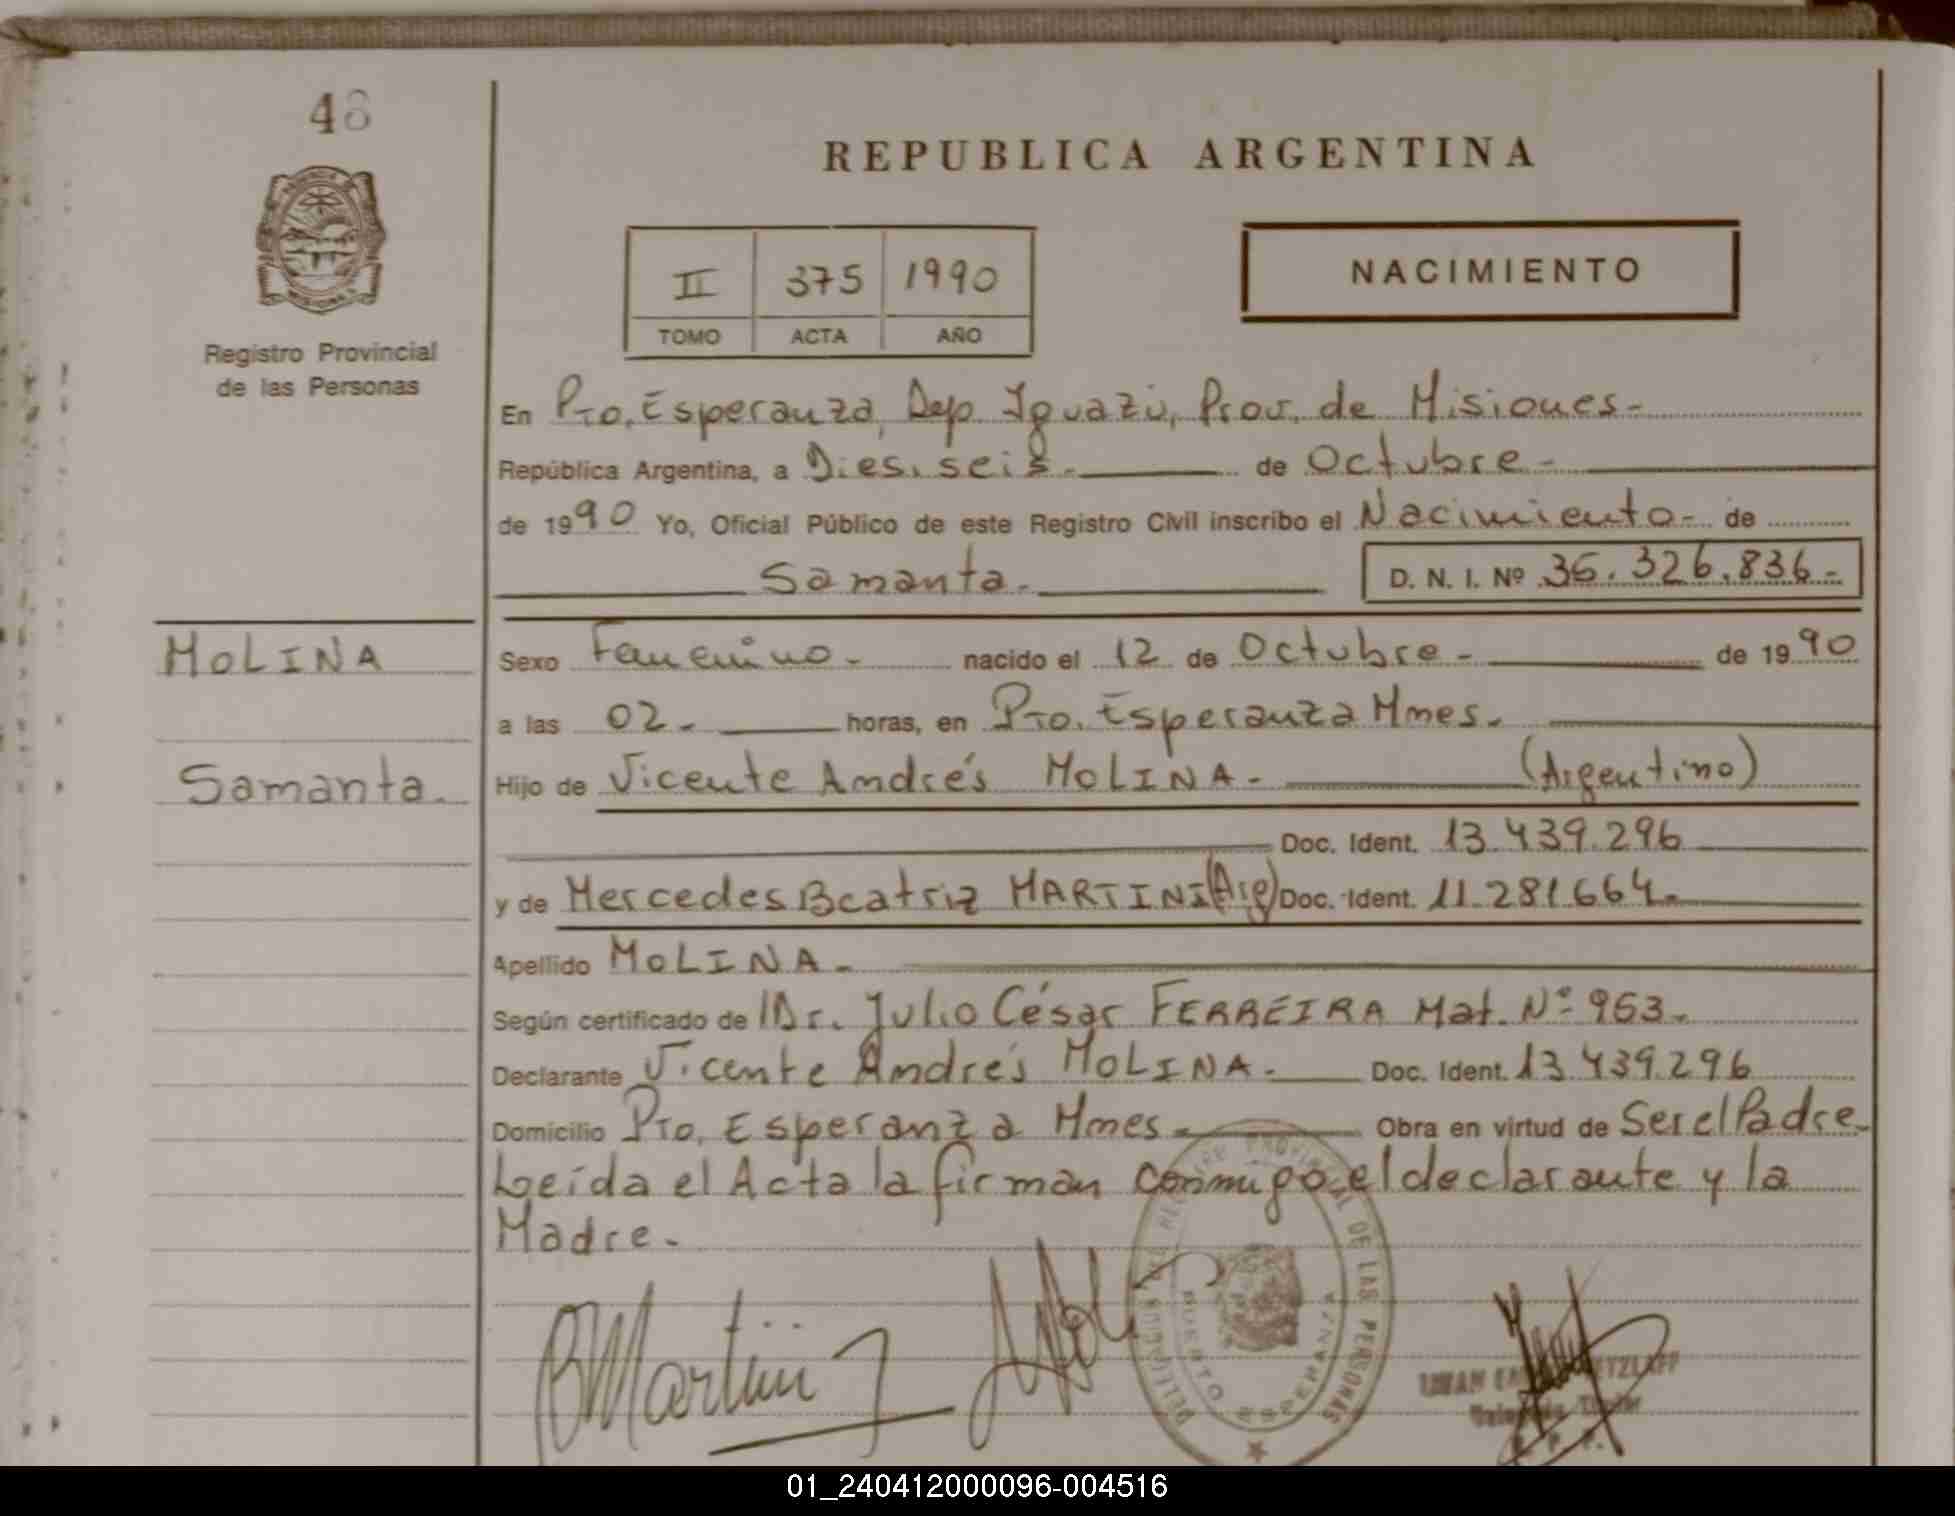 48
REPUBLICA ARGENTINA
II 375 1990
TOMO ACTA AÑO
NACIMIENTO
Registro Provincial
de las Personas
En Pto. Esperanza, Dep. Iguazú, Prov. de Misiones-
República Argentina, a Dies. seis.- de Octubre-
de 1990 Yo, Oficial Público de este Registro Civil inscribo el Nacimiento- de
Samanta.
D. N. I. Nº 35.326.836-
MOLINA
Sexo Femenino- nacido el 12 de Octubre- de 1990
a las 02- horas, en Pto. Esperanza Mnes.
Samanta.
Hijo de Vicente Andrés MOLINA- (Argentino)
Doc. Ident. 13.439.296
y de Mercedes Beatriz MARTINI (Arg) Doc. Ident. 11.281664-
Apellido MOLINA-
Según certificado de Dr. Julio César FERREIRA Mat. Nº 953-
Declarante Vicente Andrés MOLINA- Doc. Ident. 13.439.296
Domicilio Pto. Esperanza Mnes- Obra en virtud de Ser el Padre-
Leída el Acta la firman conmigo el declarante y la
Madre-
BMartini
REGISTRO PROVINCIAL DE LAS PERSONAS
DELEGACION
PUERTO ESPERANZA
01_240412000096-004516